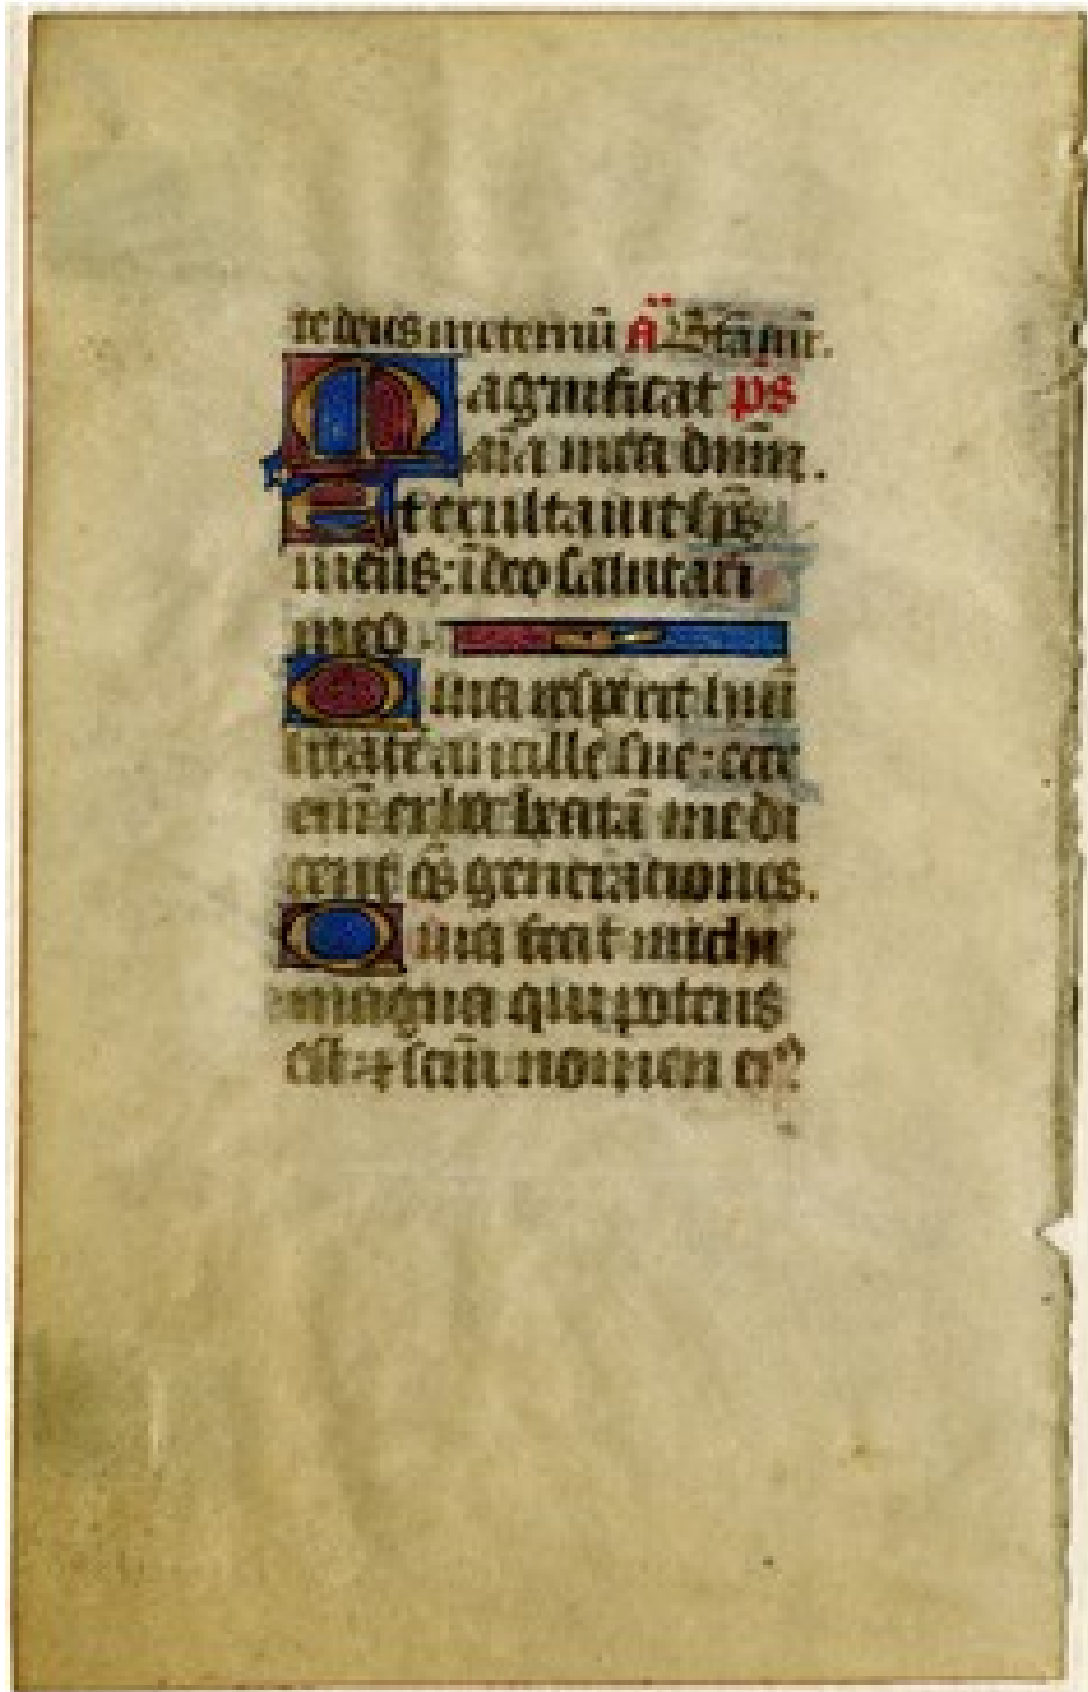 te deus in eternū A̅ Btām̄.
Magnificat ps
aīa mea dnm̄.
Et exultauit sps̄
meus: ī deo salutari
meo
Quia respexit humi
litatē ancille sue: ecce
enī ex hoc beatā me di
cent oēs generationes.
Quia fecit michi
magna qui potens
est: ⁊ scm̄ nomen eiꝰ